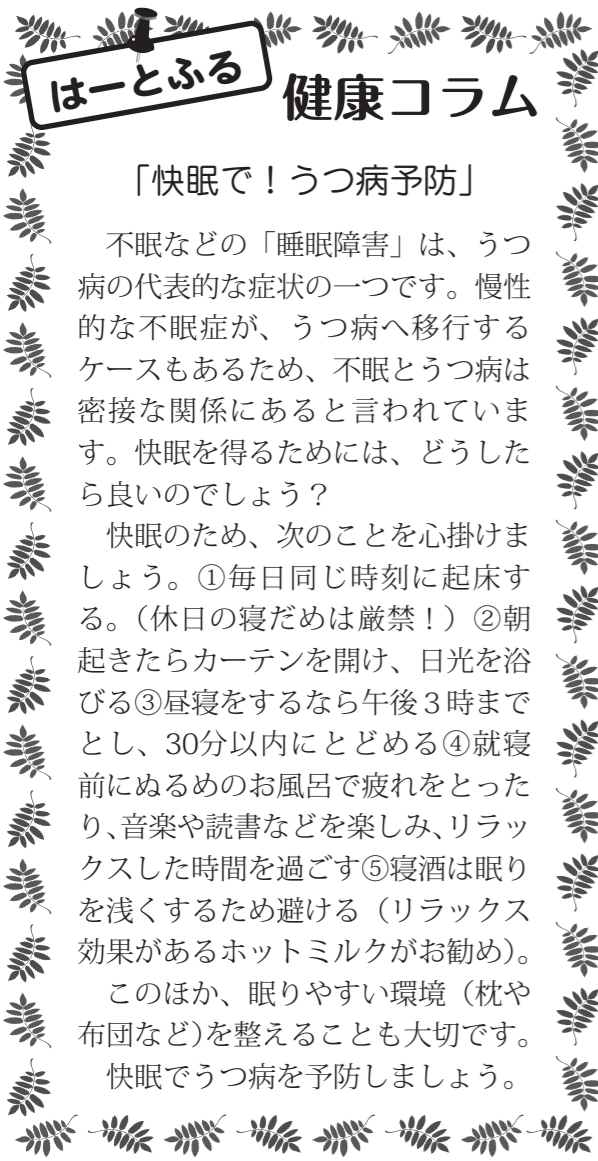 はーとふる
健康コラム
「快眠で！うつ病予防」
　不眠などの「睡眠障害」は、うつ
病の代表的な症状の一つです。慢性
的な不眠症が、うつ病へ移行する
ケースもあるため、不眠とうつ病は
密接な関係にあると言われていま
す。快眠を得るためには、どうした
ら良いのでしょう？
　快眠のため、次のことを心掛けま
しょう。①毎日同じ時刻に起床す
る。（休日の寝だめは厳禁！）②朝
起きたらカーテンを開け、日光を浴
びる③昼寝をするなら午後３時まで
とし、30分以内にとどめる④就寝
前にぬるめのお風呂で疲れをとった
り、音楽や読書などを楽しみ、リラッ
クスした時間を過ごす⑤寝酒は眠り
を浅くするため避ける（リラックス
効果があるホットミルクがお勧め）。
　このほか、眠りやすい環境（枕や
布団など）を整えることも大切です。
　快眠でうつ病を予防しましょう。